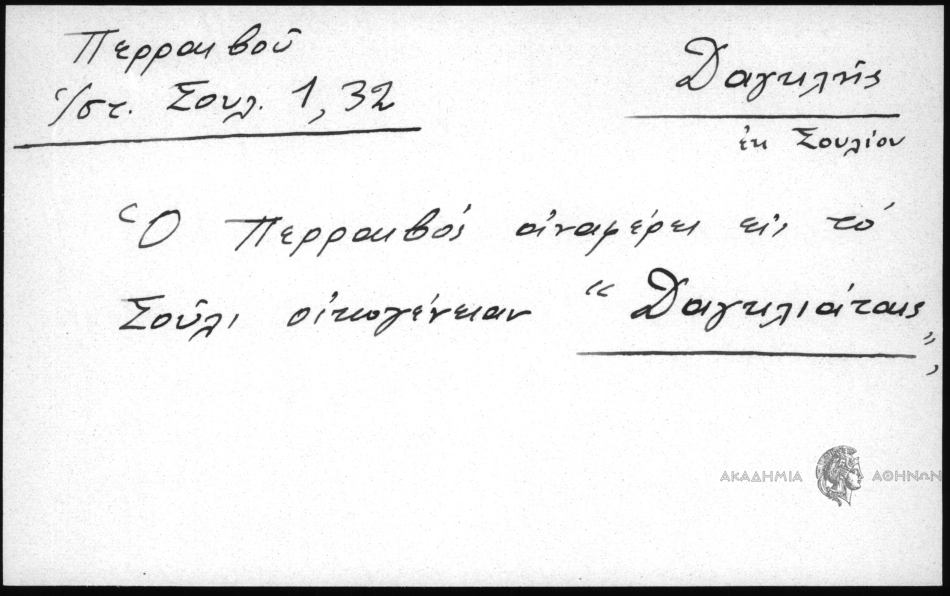 Περραιβοῦ
Ἱστ. Σουλ. 1, 32
Δαγκλῆς
ἐκ Σουλίου
Ὁ Περραιβός ἀναφέρει εἰς τό
Σοῦλι οἰκογένειαν "Δαγκλιάταις",
ΑΚΑΔΗΜΙΑ ΑΘΗΝΩΝ